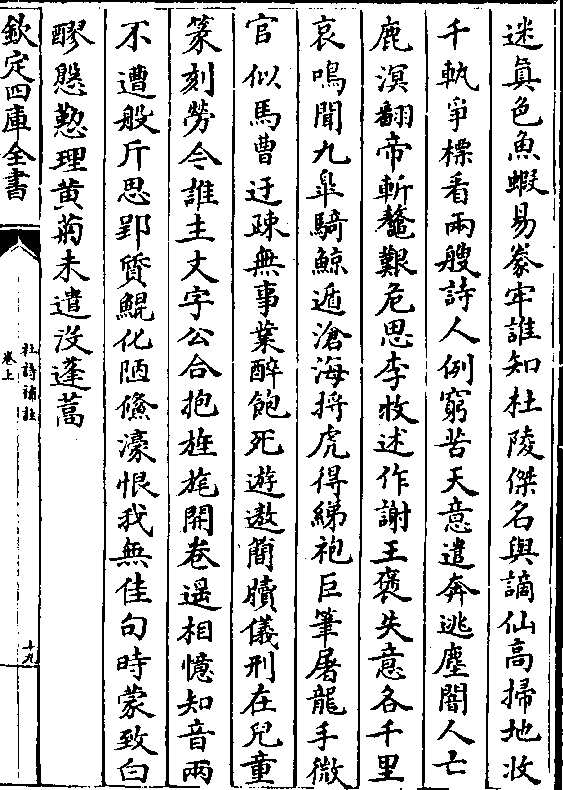 迷真色魚蝦易豢牢誰知杜陵傑名與謫仙高掃地收
千軌爭標看兩艘詩人例窮苦天意遣奔逃塵闇人亡
鹿溟翻帝斬鼇艱危思李牧述作謝王褒失意各千里
哀鳴聞九臯騎鯨遁滄海捋虎得綈袍巨筆屠龍手微
官似馬曹迂疎無事業醉飽死遊遨簡牘儀刑在兒童
篆刻勞今誰主文字公合抱旌旄開卷遥相憶知音兩
不遭般斤思郢質鯤化陋鯈濠恨我無佳句時蒙致白
醪慇懃理黄菊未遣沒蓬蒿
欽定四庫全書
杜詩補註
卷上
十九